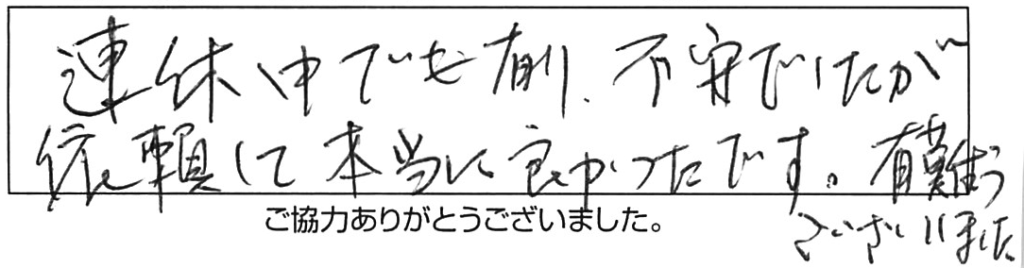 連休中でも有り、不安でしたが
依頼して本当に良かったです。有難う
ございました
ご協力ありがとうございました。